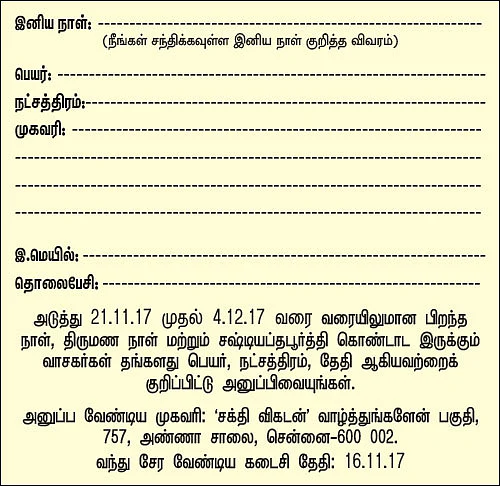 இனிய நாள்: --------------------------------------------------
(நீங்கள் சந்திக்கவுள்ள இனிய நாள் குறித்த விவரம்)
பெயர்: --------------------------------------------------
நட்சத்திரம்:--------------------------------------------------
முகவரி: --------------------------------------------------
--------------------------------------------------
--------------------------------------------------
--------------------------------------------------
இ.மெயில்: --------------------------------------------------
தொலைபேசி: --------------------------------------------------
அடுத்து 21.11.17 முதல் 4.12.17 வரை வரையிலுமான பிறந்த
நாள், திருமண நாள் மற்றும் சஷ்டியப்தபூர்த்தி கொண்டாட இருக்கும்
வாசகர்கள் தங்களது பெயர், நட்சத்திரம், தேதி ஆகியவற்றைக்
குறிப்பிட்டு அனுப்பிவையுங்கள்.
அனுப்ப வேண்டிய முகவரி: ‘சக்தி விகடன்’ வாழ்த்துங்களேன் பகுதி,
757, அண்ணா சாலை, சென்னை-600 002.
வந்து சேர வேண்டிய கடைசி தேதி: 16.11.17